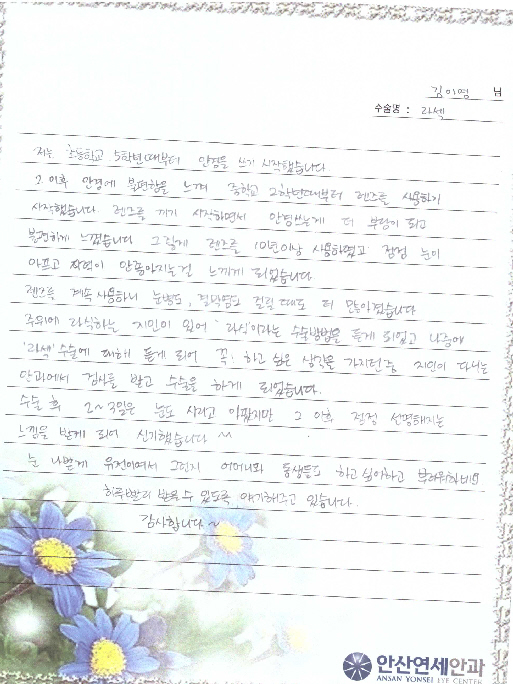 김이영 님
수술명 : 라섹
저는 초등학교 5학년때부터 안경을 쓰기 시작했습니다
그 이후 안경에 불편함을 느껴 중학교 2학년때부터 렌즈를 사용하기
시작했습니다 렌즈를 끼기 시작하면서 안경쓰는게 더 부담이 되고
불편하게 느꼈습니다 그렇게 렌즈를 10년이상 사용하였고 점점 눈이
아프고 착용이 안좋아지는걸 느끼게 되었습니다
렌즈를 계속 사용하니 눈병도, 결막염도 걸릴때도 더 많아졌습니다
주위에 라식하는 지인이 있어 '라식'이라는 수술방법을 듣게 되었고 나중에
'라섹' 수술에 대해 듣게 되어 꼭 하고 싶은 생각을 가지던중 지인이 다니는
안과에서 검사를 받고 수술을 하게 되었습니다.
수술 후 2~3일은 눈도 시리고 아팠지만 그 이후 점점 선명해지는
느낌을 받게 되어 신기했습니다 ~
눈 나쁜게 유전이여서 그런지 어머니와 동생들도 하고싶어하고 부러워하
하루빨리 받을 수 있도록 얘기해주고 있습니다.
감사합니다~
안산연세안과
ANSAN YONSEI EYE CENTER